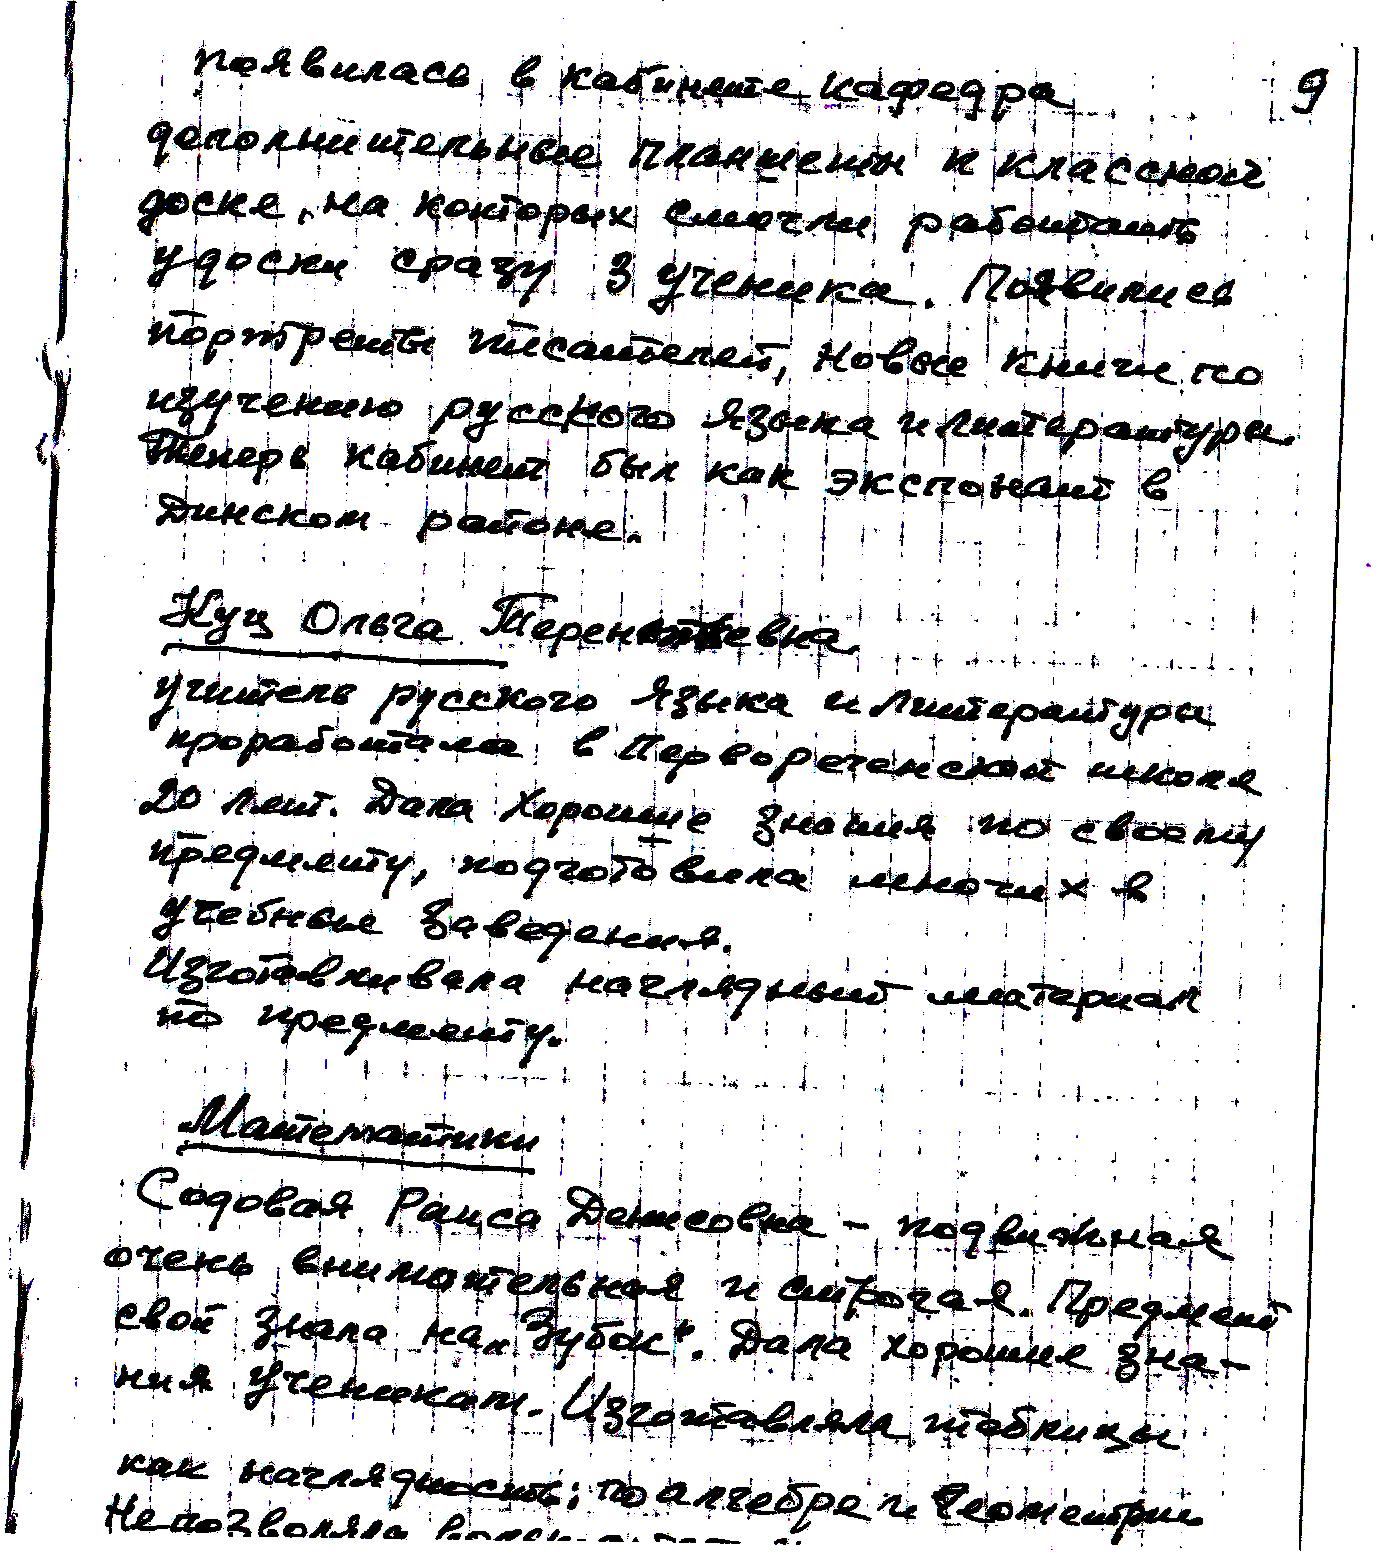 появилась в кабинете кафедра 9
дополнительные планшеты к классной
доске, на которых смогли работать
у доски сразу 3 ученика. Появились
портреты писателей, новые книги по
изучению русского языка и литературы.
Теперь кабинет был как экспонат в
Динском районе.
Куц Ольга Терентьевна
учитель русского языка и литературы
проработала в Первореченской школе
20 лет. Дала хорошие знания по своему
предмету, подготовила многих в
учебные заведения.
Изготавливала наглядный материал
по предмету.
Математики
Содовая Раиса Денисовна – подвижная
очень внимательная и строгая. Предмет
свой знала на „Зубок". Дала хорошие зна-
ния ученикам. Изготавляла таблицы
как наглядность: по алгебре и геометрии
Не позволяла